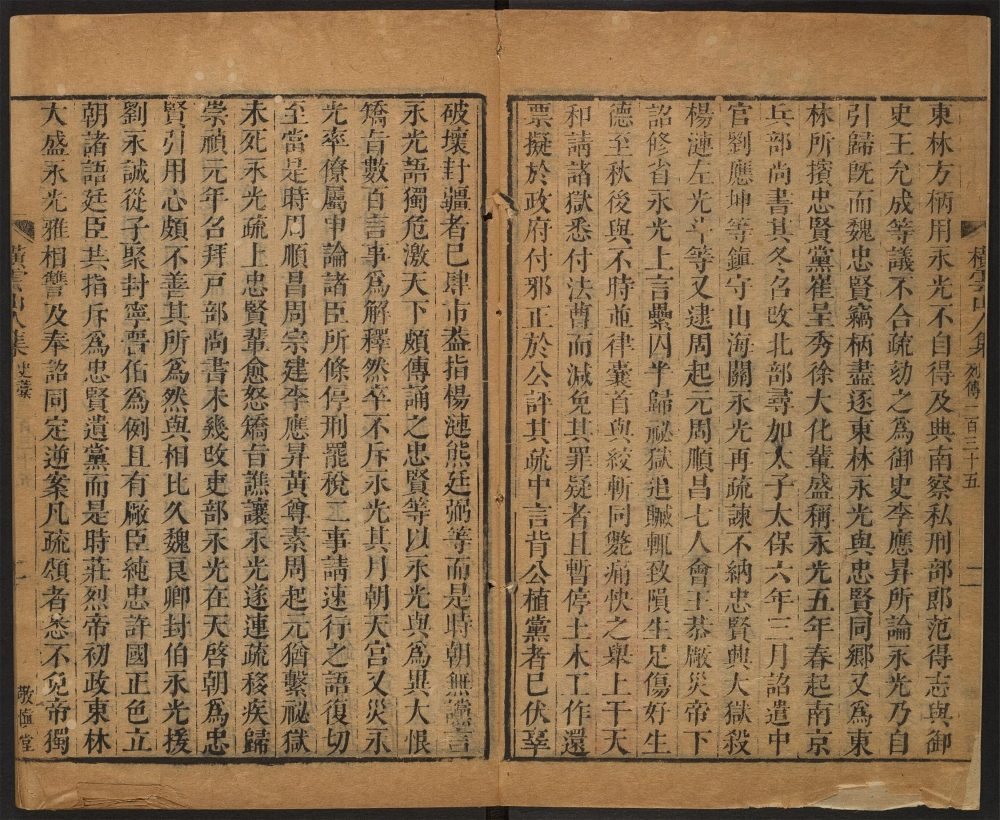 東林方柄用永光不自得及典南察私刑部郎范得志與御
史王允成等議不合疏劾之爲御史李應昇所論永光乃自
引歸旣而魏忠賢竊柄盡逐東林永光與忠賢同鄉又爲東
林所擯忠賢黨崔呈秀徐大化輩盛稱永光五年春起南京
兵部尚書其冬召改北部尋加太子太保六年三月詔遣中
官劉應坤等鎮守山海關永光再疏諫不納忠賢興大獄殺
楊漣左光斗等又逮周起元周順昌七人會王恭廠災帝下
詔修省永光上言纍囚半歸祕獄追贓輒致隕生足傷好生
德至秋後與不時並律橐首與絞斬同斃痛怏之舉上干天
和請諸獄悉付法曹而減免其罪疑者且暫停土木工作還
票擬於政府付邪正於公評其疏中言背公植黨者已伏辜
破壞封疆者已肆市葢指楊漣熊廷弼等而是時朝無讜言
永光語獨危激天下頗傳誦之忠賢等以永光與爲異大恨
矯旨數百言事爲解釋然卒不斥永光其月朝天宮又災永
光率僚屬申論諸臣所條停刑罷稅二事請速行之語復切
至當是時周順昌周宗建李應昇黃尊素周起元猶繫祕獄
未死永光疏上忠賢輩愈怒矯旨譙讓永光遂連疏移疾歸
崇禎元年召拜戸部尚書未幾改吏部永光在天啓朝爲忠
賢引用心頗不善其所爲然與相比久魏良卿封伯永光援
劉永誠從子聚封寧晉伯爲例且有廠臣純忠許國正色立
朝諸語廷臣共指斥爲忠賢遺黨而是時莊烈帝初政東林
大盛永光雅相讐及奉詔同定逆案凡疏頌者悉不免帝獨
橫雲山人集 列傳一百三十五
橫雲山人集 史藁
敬愼堂